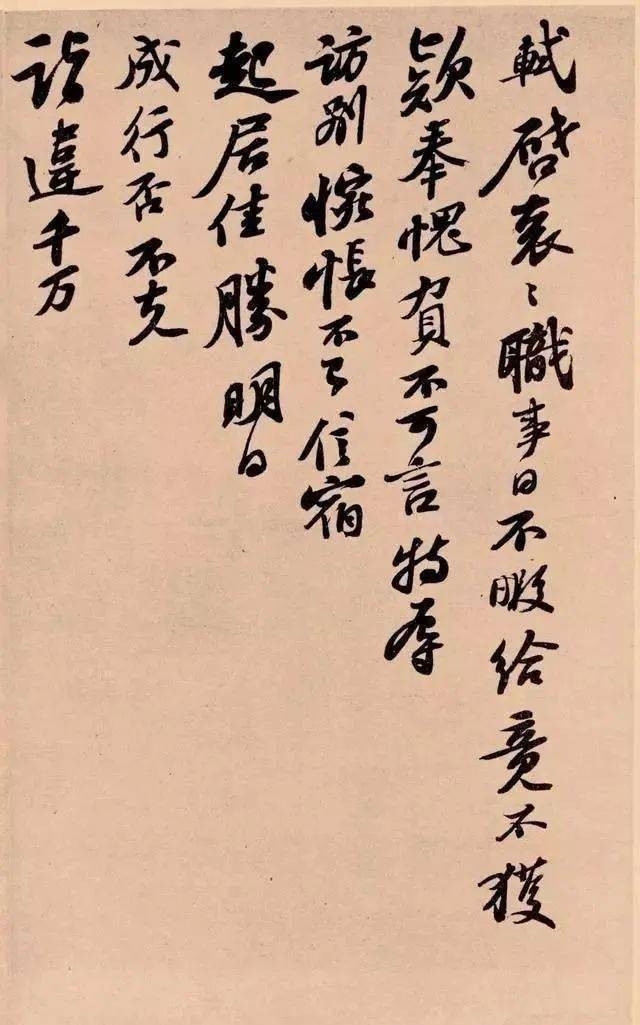 軾啓衮〻職事日不暇給竟不獲
款奉愧負不可言特辱
訪別惋悵不已信宿
起居佳勝明日
成行否不克
詣違千万